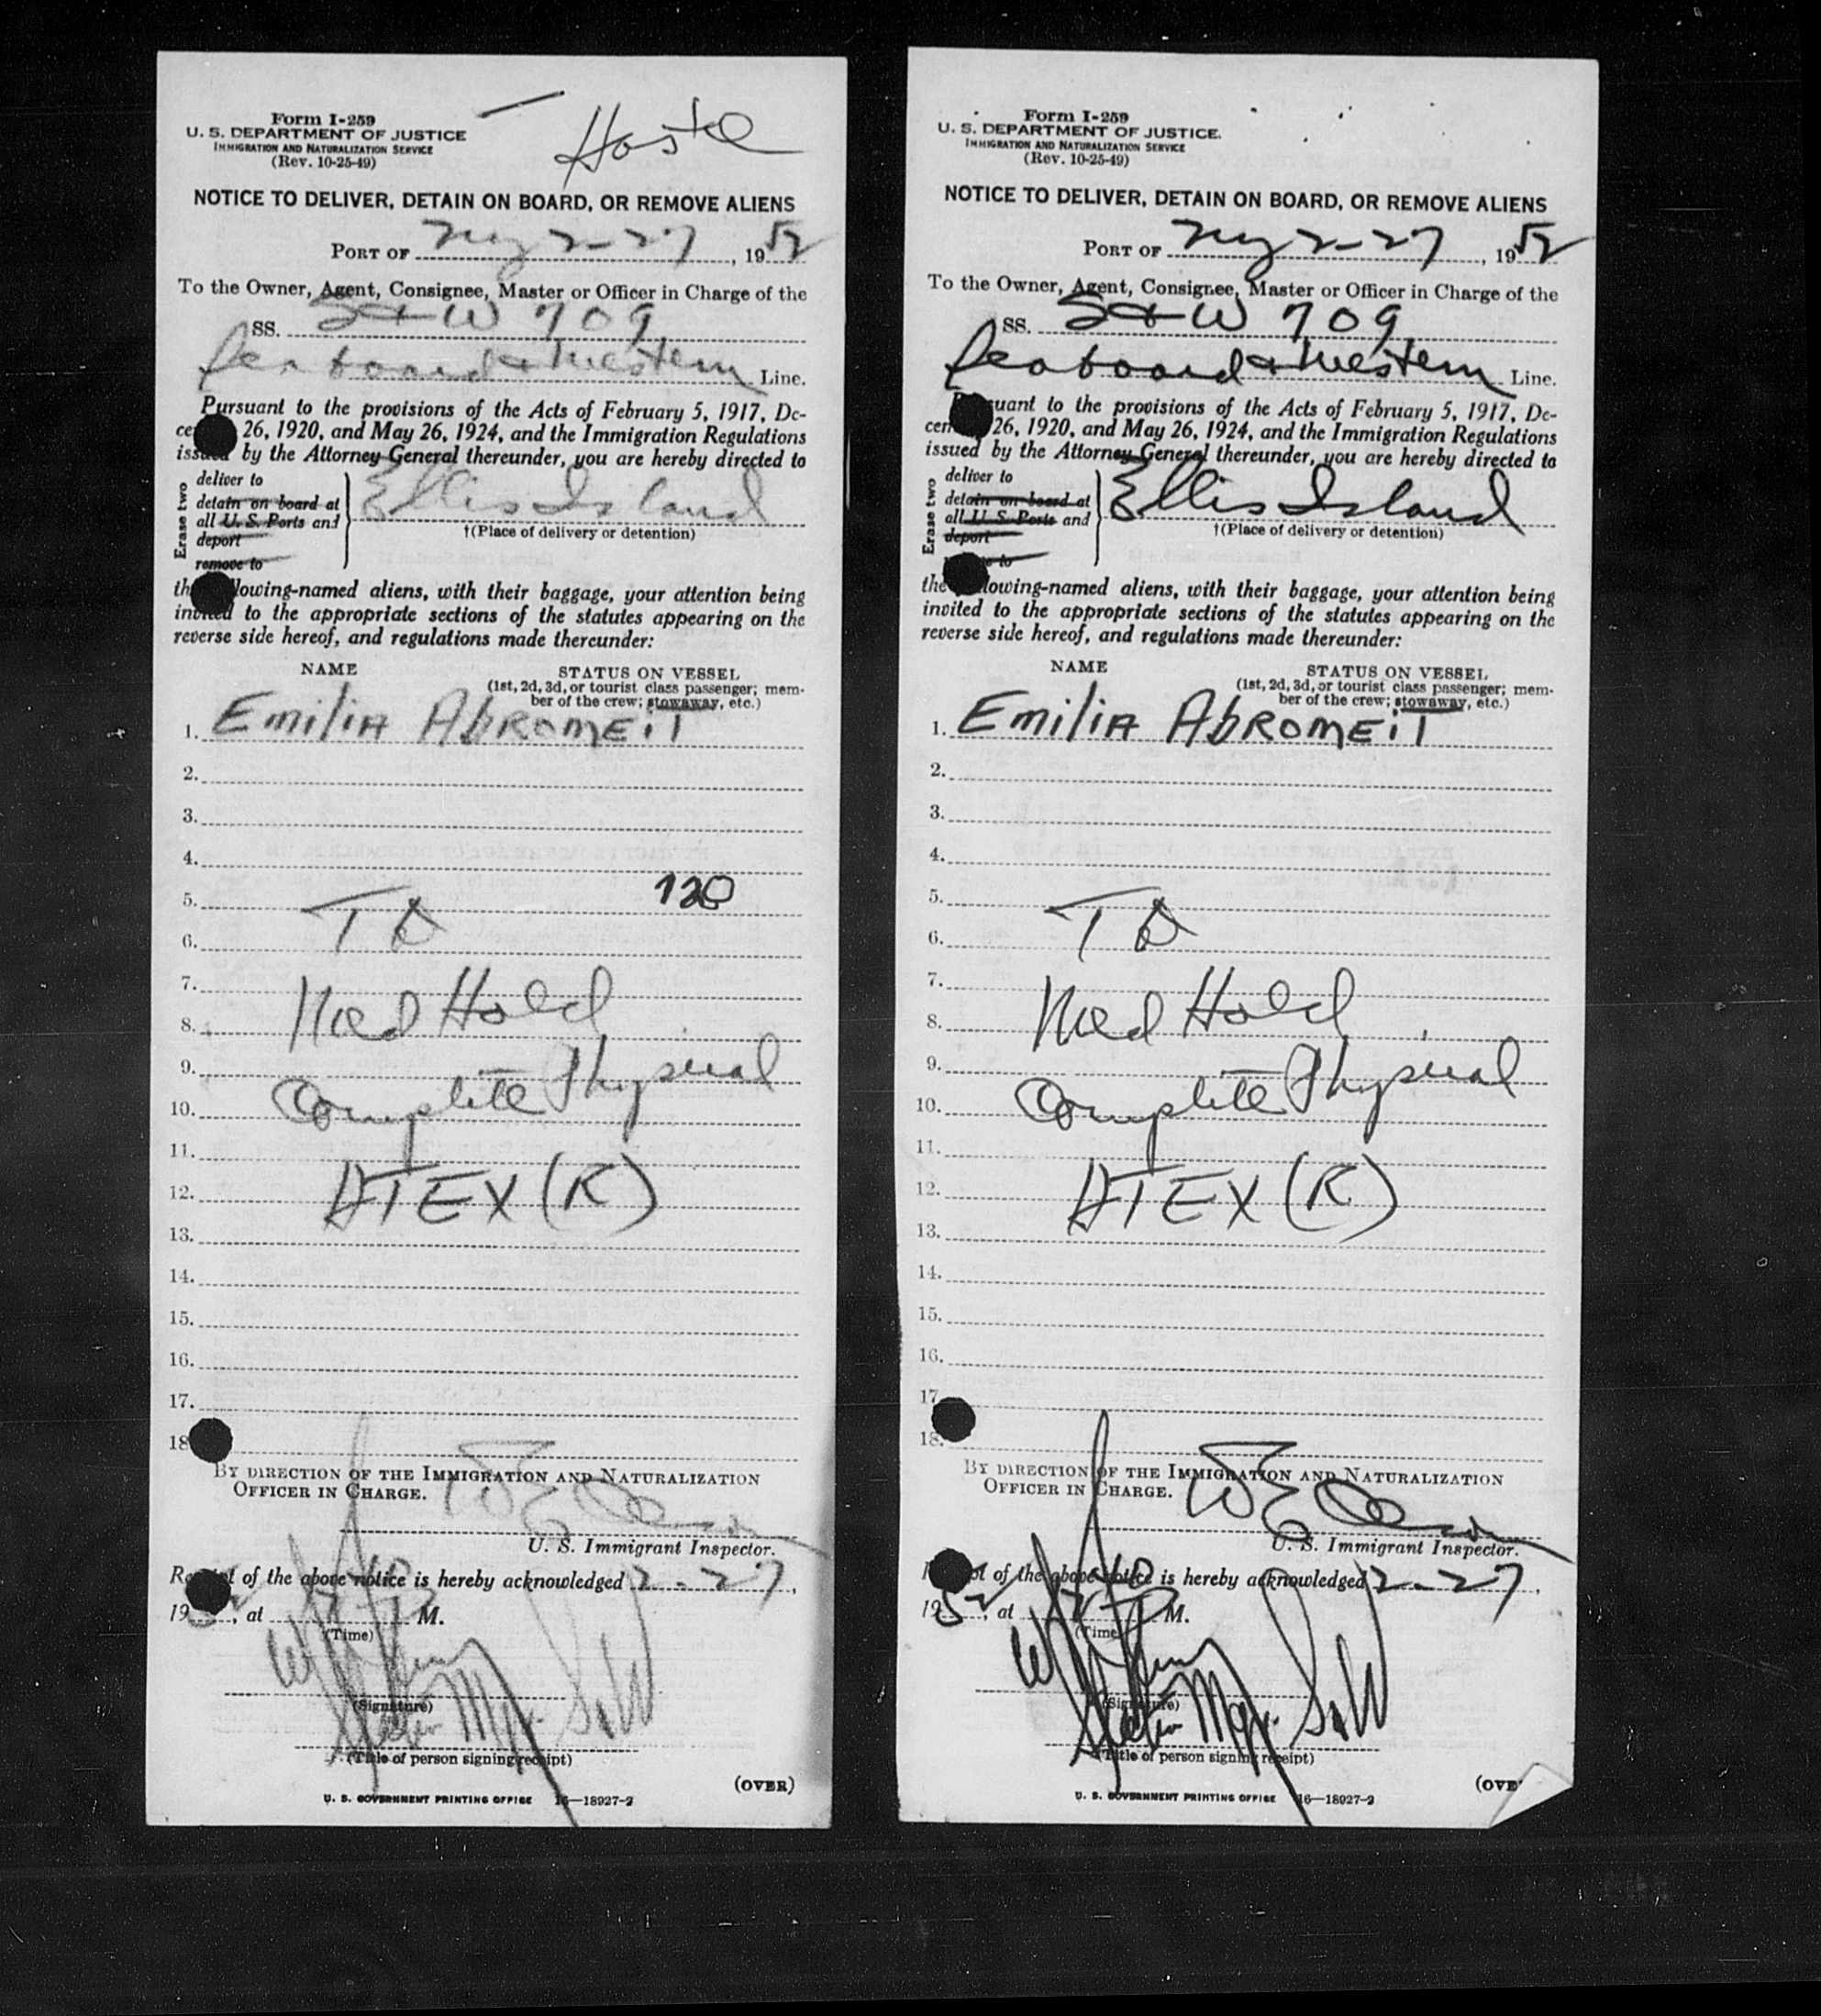 Form I-259
U. S. DEPARTMENT OF JUSTICE
IMMIGRATION AND NATURALIZATION SERVICE
(Rev. 10-25-49)
NOTICE TO DELIVER, DETAIN ON BOARD, OR REMOVE ALIENS
PORT OF NY 2-27, 1952
To the Owner, Agent, Consignee, Master or Officer in Charge of the
SS. S+W 709
Seaboard & Western Line.
Pursuant to the provisions of the Acts of February 5, 1917, De-
26, 1920, and May 26, 1924, and the Immigration Regulations
issued by the Attorney General thereunder, you are hereby directed to
Erase two
deliver to
detain on board at
all U. S. Ports and
deport
remove to
Ellis Island
†(Place of delivery or detention)
the following-named aliens, with their baggage, your attention being
invited to the appropriate sections of the statutes appearing on the
reverse side hereof, and regulations made thereunder:
NAME
STATUS ON VESSEL
(1st, 2d, 3d, or tourist class passenger; mem-
ber of the crew; stowaway, etc.)
1. Emilia Abromeit
2.
3.
4.
5. 120
6. TD
7.
8. Med Hold
9.
10. Complete Physical
11.
12. TEX (R)
13.
14.
15.
16.
17.
18.
BY DIRECTION OF THE IMMIGRATION AND NATURALIZATION
OFFICER IN CHARGE.
U. S. Immigrant Inspector.
Receipt of the above notice is hereby acknowledged 2-27,
1952, at M.
(Time)
(Signature)
Mgr. S&W
(Title of person signing receipt)
(OVER)
U. S. GOVERNMENT PRINTING OFFICE 16—18927-2
Form I-259
U. S. DEPARTMENT OF JUSTICE.
IMMIGRATION AND NATURALIZATION SERVICE
(Rev. 10-25-49)
NOTICE TO DELIVER, DETAIN ON BOARD, OR REMOVE ALIENS
PORT OF NY 2-27, 1952
To the Owner, Agent, Consignee, Master or Officer in Charge of the
SS. S+W 709
Seaboard & Western Line.
Pursuant to the provisions of the Acts of February 5, 1917, De-
26, 1920, and May 26, 1924, and the Immigration Regulations
issued by the Attorney General thereunder, you are hereby directed to
Erase two
deliver to
detain on board at
all U. S. Ports and
deport
to
Ellis Island
†(Place of delivery or detention)
the following-named aliens, with their baggage, your attention being
invited to the appropriate sections of the statutes appearing on the
reverse side hereof, and regulations made thereunder:
NAME
STATUS ON VESSEL
(1st, 2d, 3d, or tourist class passenger; mem-
ber of the crew; stowaway, etc.)
1. Emilia Abromeit
2.
3.
4.
5.
6. TD
7.
8. Med Hold
9.
10. Complete Physical
11.
12. TEX (R)
13.
14.
15.
16.
17.
18.
BY DIRECTION OF THE IMMIGRATION AND NATURALIZATION
OFFICER IN CHARGE.
U. S. Immigrant Inspector.
of the above notice is hereby acknowledged 2-27,
1952, at M.
(Time)
(Signature)
Mgr. S&W
(Title of person signing receipt)
U. S. GOVERNMENT PRINTING OFFICE 16—18927-2